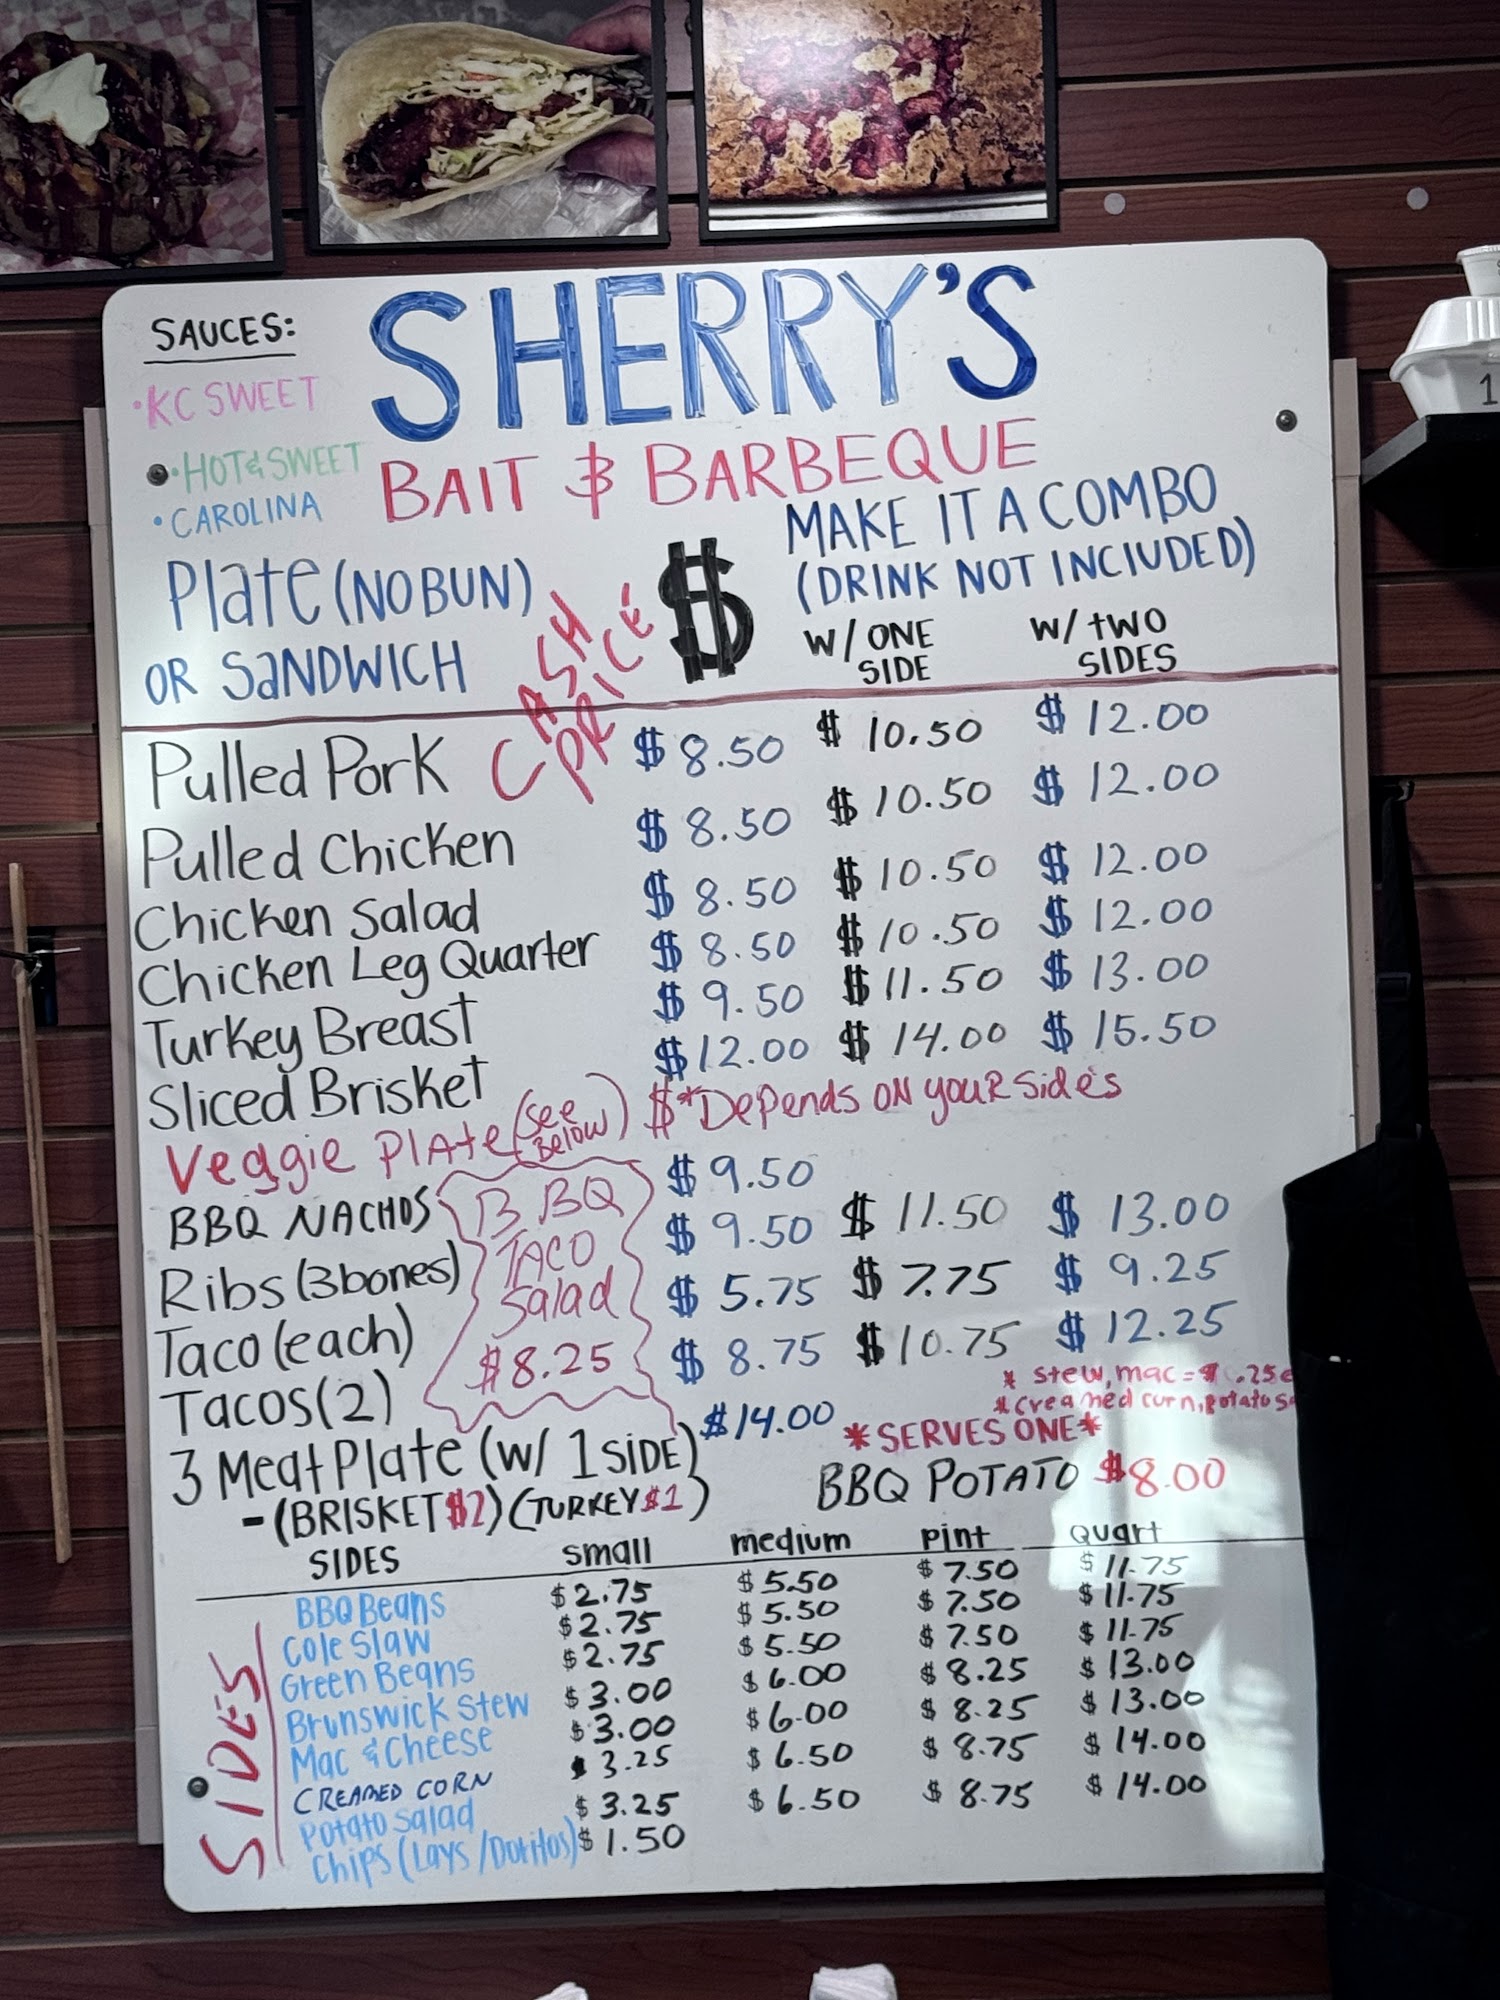 SAUCES:
SHERRY'S
• KC SWEET
• HOT & SWEET
• CAROLINA
BAIT & BARBEQUE
MAKE IT A COMBO
(DRINK NOT INCLUDED)
Plate (NO BUN)
OR SANDWICH
CASH
PRICE
$
W/ ONE SIDE
W/ TWO SIDES
Pulled Pork $8.50 $10.50 $12.00
Pulled Chicken $8.50 $10.50 $12.00
Chicken Salad $8.50 $10.50 $12.00
Chicken Leg Quarter $8.50 $10.50 $12.00
Turkey Breast $9.50 $11.50 $13.00
Sliced Brisket $12.00 $14.00 $15.50
Veggie Plate (See Below) $*Depends on your sides
BBQ NACHOS $9.50
Ribs (3 bones) $9.50 $11.50 $13.00
Taco (each) $5.75 $7.75 $9.25
Tacos (2) $8.75 $10.75 $12.25
BBQ
TACO
Salad
$8.25
* stew, mac = $ .25¢
* creamed corn, potato
3 Meat Plate (w/ 1 SIDE) $14.00
- (BRISKET $2) (TURKEY $1)
*SERVES ONE*
BBQ POTATO $8.00
SIDES small medium pint quart
SIDES
BBQ Beans $2.75 $5.50 $7.50 $11.75
Cole Slaw $2.75 $5.50 $7.50 $11.75
Green Beans $2.75 $5.50 $7.50 $11.75
Brunswick Stew $3.00 $6.00 $8.25 $13.00
Mac & Cheese $3.00 $6.00 $8.25 $13.00
CREAMED CORN $3.25 $6.50 $8.75 $14.00
Potato Salad $3.25 $6.50 $8.75 $14.00
Chips (Lays / Doritos) $1.50
1